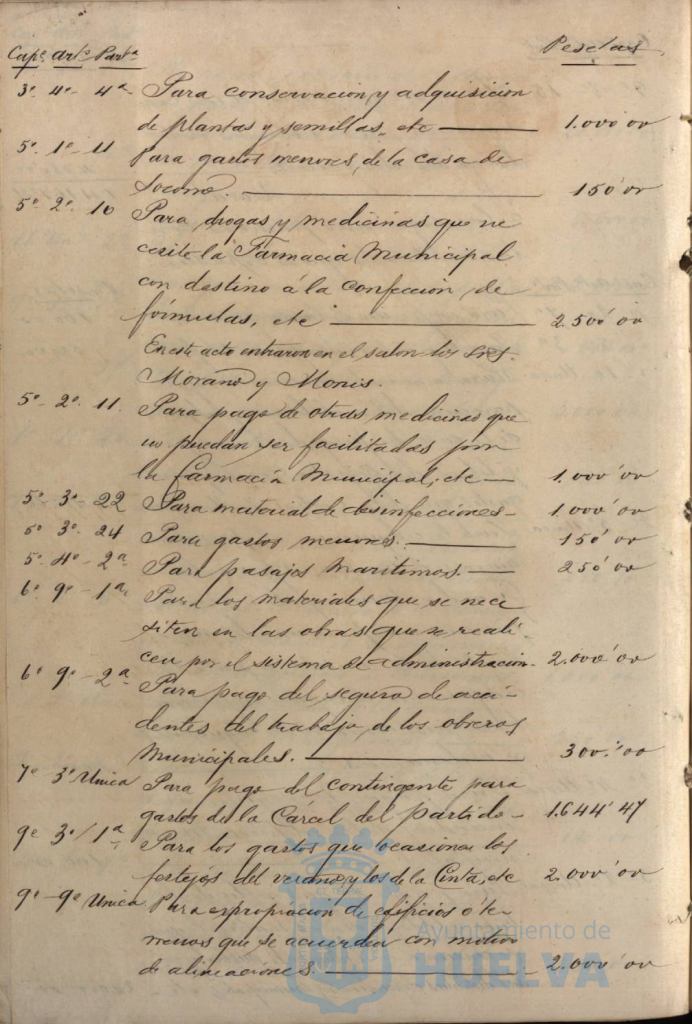 Pesetas
Cap.º art.º Part.ª
3º 4º - 4ª - Para conservacion y adquisicion
de plantas y semillas, etc — 1.000'00
5º 1º - 11 Para gastos menores, de la casa de
Socorro. — 150'00
5º 2º 10 Para drogas y medicinas que ne
cesite la Farmacia Municipal
con destino á la confeccion de
fórmulas, etc — 2.500'00
En este acto entraron en el salon los Sres.
Morano y Monis.
5º - 2º 11. Para pago de otras medicinas que
no puedan ser facilitadas por
la Farmacia Municipal, etc — 1.000'00
5º - 3º - 22 Para material de desinfecciones - 1.000'00
6º 3º. 24 Para gastos menores. — 150'00
5º 4º - 2ª Para pasajes maritimos. — 250'00
6º 9º - 1ª Para los materiales que se nece
siten en las obras que se reali-
cen por el sistema de administracion. 2.000'00
6º 9º - 2ª Para pago del seguro de acci-
dentes del trabajo, de los obreros
Municipales. — 300'00
7º 3º Unica Para pago del contingente para
gastos de la Cárcel del partido - 1.644'47
9º 3º / 1ª Para los gastos que ocasionen los
festejos del verano y los de la Cinta, etc 2.000'00
9º - 9º Unica. Para expropiacion de edificios ó te
rrenos que se acuerden con motivo
de alineaciones. — 2.000'00
Ayuntamiento de
HUELVA